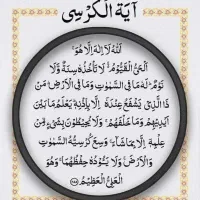 آیَةُ الْکُرْسِی
اَللّٰهُ لَاۤ اِلٰهَ اِلَّا هُوَۚ
اَلْحَیُّ الْقَیُّوْمُ ۚ لَا تَاْخُذُهٗ سِنَةٌ وَّلَا
نَوْمٌ ؕ لَهٗ مَا فِی السَّمٰوٰتِ وَمَا فِی الْاَرْضِ ؕ مَنْ
ذَا الَّذِیْ یَشْفَعُ عِنْدَهٗۤ اِلَّا بِاِذْنِهٖ ؕ یَعْلَمُ مَا بَیْنَ
اَیْدِیْهِمْ وَمَا خَلْفَهُمْ ۚ وَلَا یُحِیْطُوْنَ بِشَیْءٍ مِّنْ
عِلْمِهٖۤ اِلَّا بِمَا شَآءَ ۚ وَسِعَ کُرْسِیُّهُ السَّمٰوٰتِ
وَالْاَرْضَ ۚ وَلَا یَـُٔوْدُهٗ حِفْظُهُمَا ۚ وَهُوَ
الْعَلِیُّ الْعَظِیْمُ ﴿۲۵۵﴾